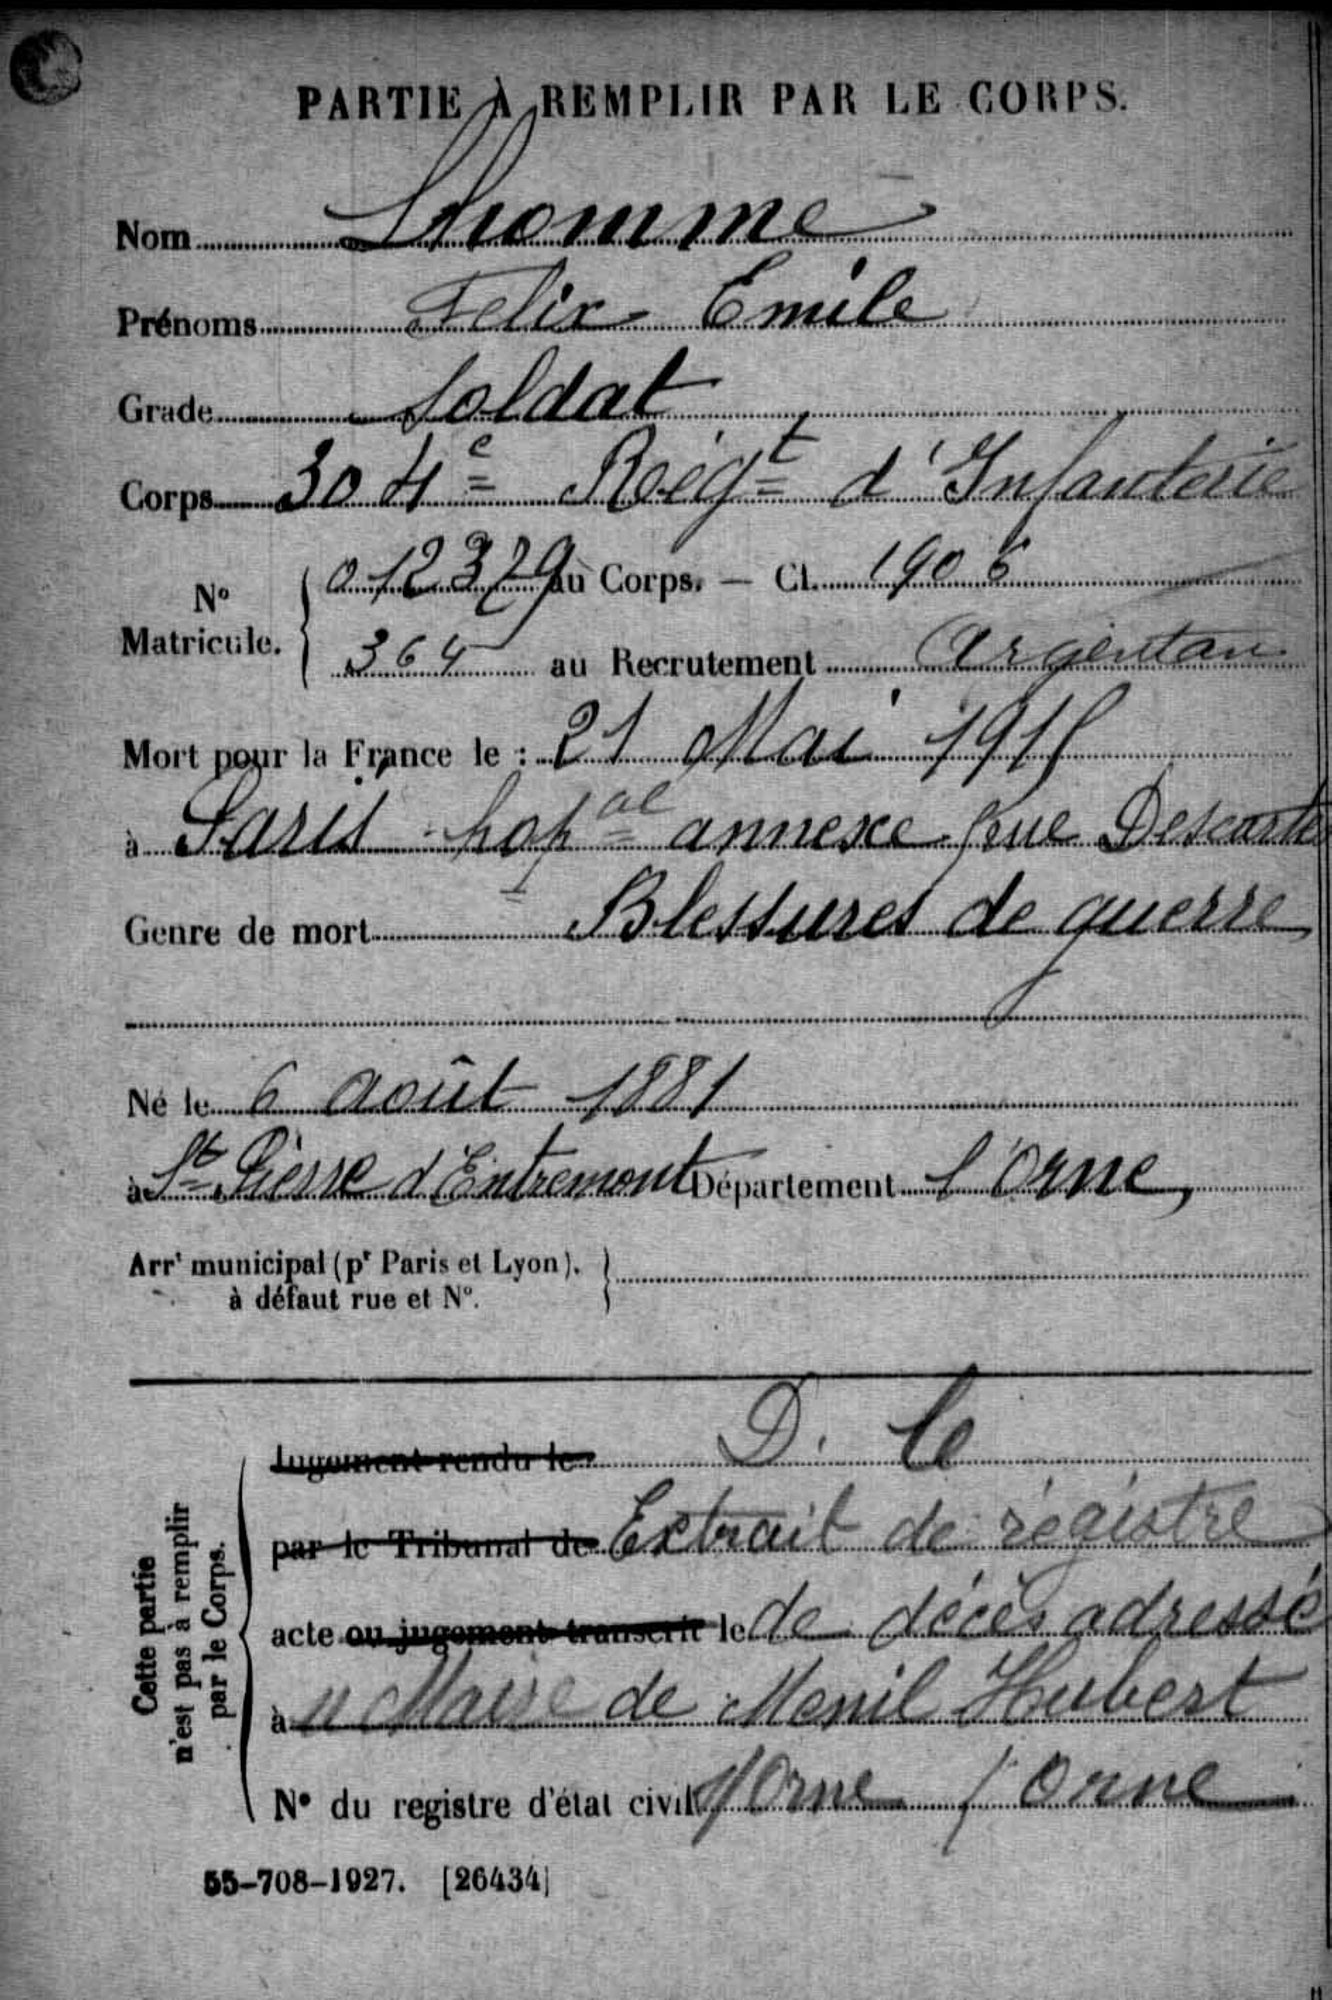 PARTIE À REMPLIR PAR LE CORPS.
Nom Lhomme
Prénoms Felix Emile
Grade Soldat
Corps 304e Régt d'Infanterie
No Matricule. 012379 au Corps. — Cl. 1906
364 au Recrutement Argentan
Mort pour la France le : 21 Mai 1915
à Paris hopal annexe rue Descartes
Genre de mort Blessures de guerre
Né le 6 août 1881
à St Pierre d'Entremont Département l'Orne,
Arrt municipal (pr Paris et Lyon),
à défaut rue et No.
Cette partie
n'est pas à remplir
par le Corps.
Jugement rendu le D. C
par le Tribunal de Extrait de régistre
acte ou jugement transcrit le de décès adressé
à Maire de Menil Hubert
No du registre d'état civil s/Orne l'Orne
55-708-1927. [26434]